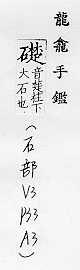 龍龕手鑑
礎音楚柱下
大石也
(石部
V3
P33
A3)